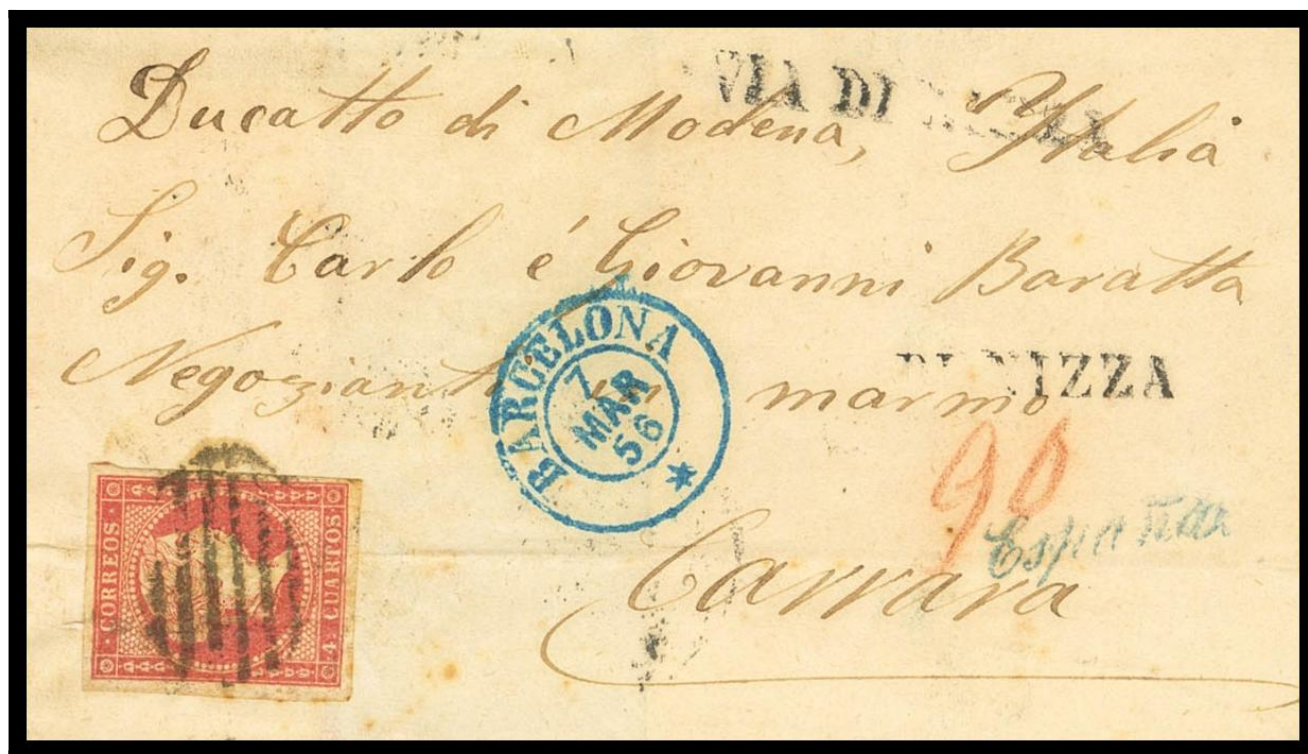 VIA DI NIZZA
Ducatto di Modena, Ytalia
Sig. Carlo é Giovanni Baratta
Negozianti in marmo
DI NIZZA
BARCELONA
7
MAR
56
90
Carrara
CORREOS
4 CUARTOS